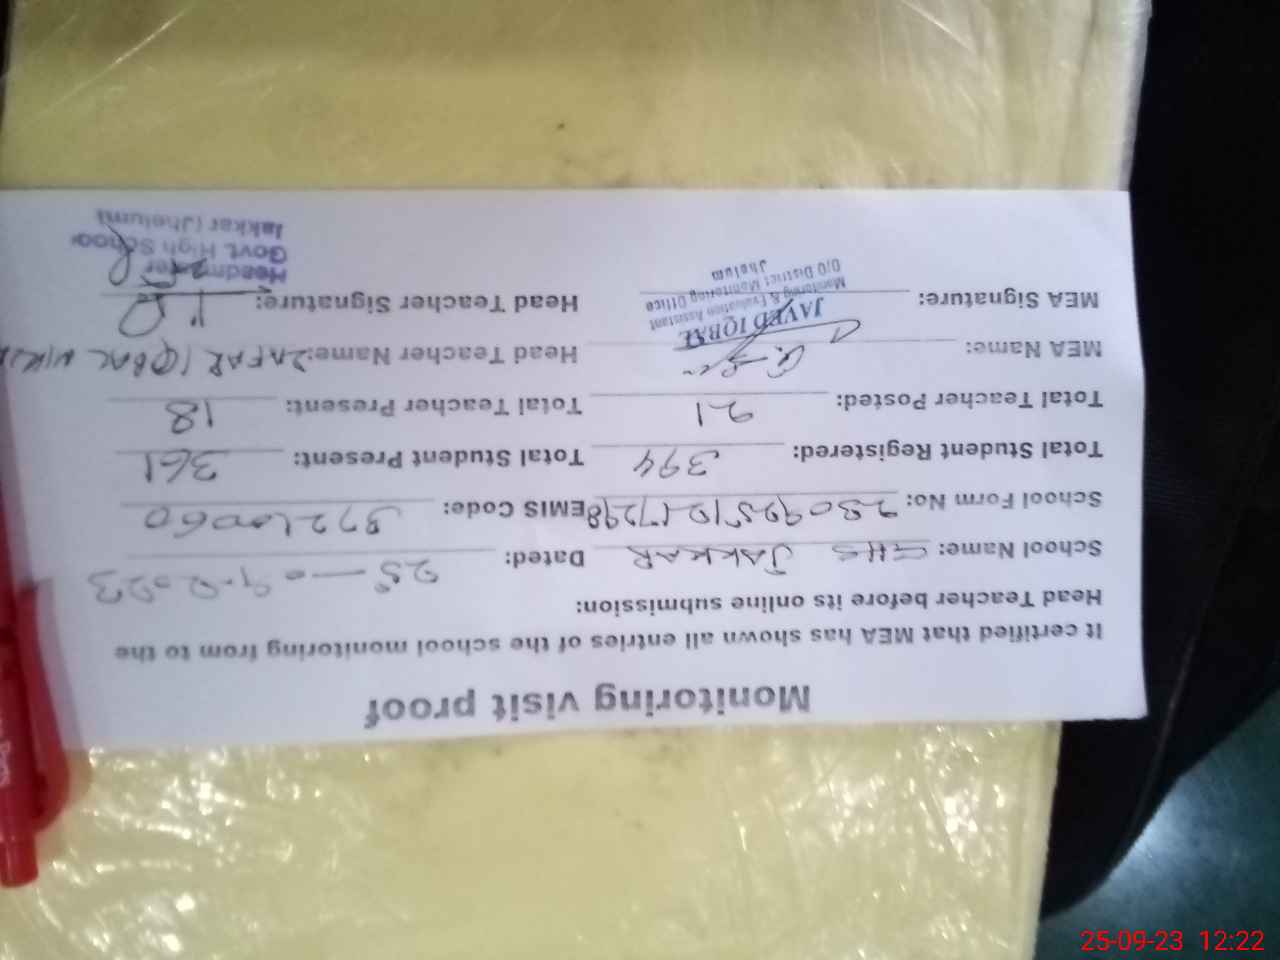 Monitoring visit proof
It certified that MEA has shown all entries of the school monitoring from to the
Head Teacher before its online submission:
School Name: GHS JAKKAR Dated: 25-09-2023
School Form No: EMIS Code: 37210060
Total Student Registered: 394 Total Student Present: 361
Total Teacher Posted: 21 Total Teacher Present: 18
MEA Name: Head Teacher Name: ZAFAR IQBAL
MEA Signature: Head Teacher Signature:
JAVED IQBAL
Monitoring & Evaluation Assistant
O/O District Monitoring Office
Jhelum
Headmaster
Govt. High School
Jakkar (Jhelum)
25-09-23 12:22